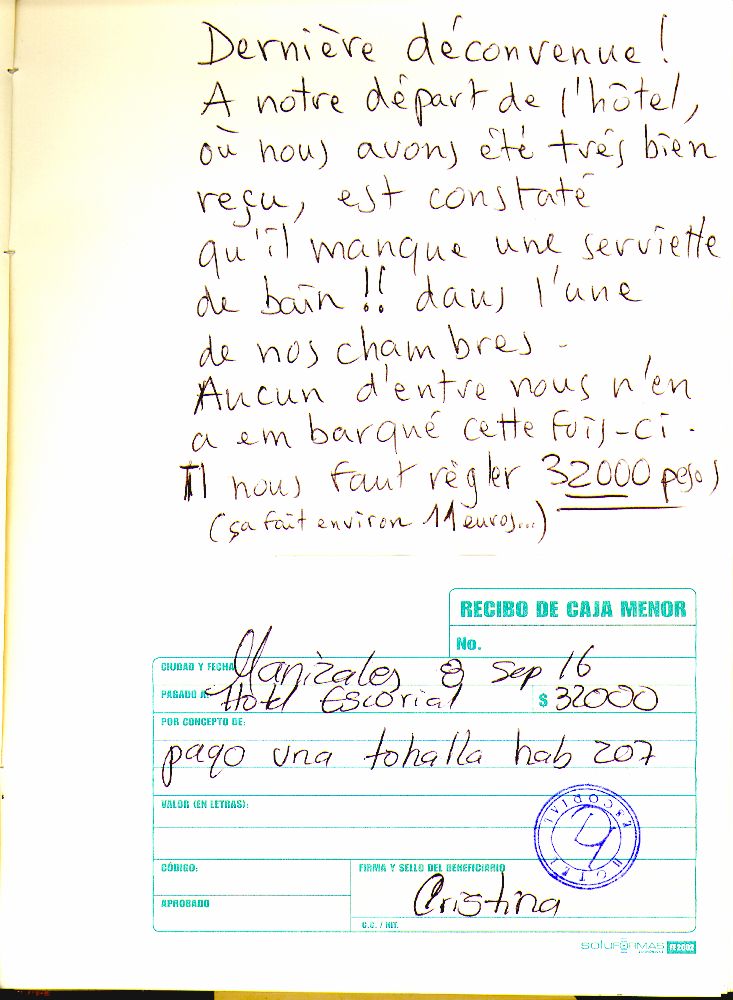 Dernière déconvenue !
A notre départ de l'hôtel,
où nous avons été trés bien
reçu, est constaté
qu'il manque une serviette
de bain !! dans l'une
de nos chambres.
Aucun d'entre nous n'en
a embarqué cette fois-ci.
Il nous faut règler 32000 pesos
(ça fait environ 11 euros...)
RECIBO DE CAJA MENOR
No.
CIUDAD Y FECHA: Manizales 8 Sep 16
PAGADO A: Hotel Escorial $ 32000
POR CONCEPTO DE:
pago una tohalla hab 207
VALOR (EN LETRAS):
HOTEL ESCORIAL
CÓDIGO: FIRMA Y SELLO DEL BENEFICIARIO
Cristina
APROBADO
C.C. / NIT.
SOLUFORMAS